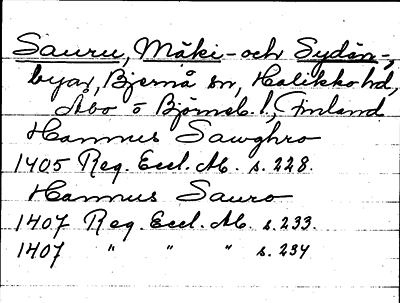 Sauru, Mäki- och Sydän-,
byar, Bjernå sn, Halikko hd,
Åbo o Björneb. l, Finland
Hannus Sawghro
1405 Reg. Eccl. Ab. s. 228.
Hannus Sauro
1407 Reg. Eccl. Ab. s. 233.
1407 " " " s. 234